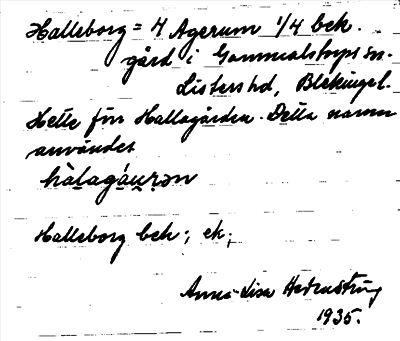 Halleborg = 4 Agerum 1/4 bek.
gård i Gammalstorps sn.
Listers hd, Blekinge l.
Hette förr Hallagården. Detta namn
användes
hàlagáu̯ɽən
Halleborg bek; ek;
Anna-Lisa
1935.